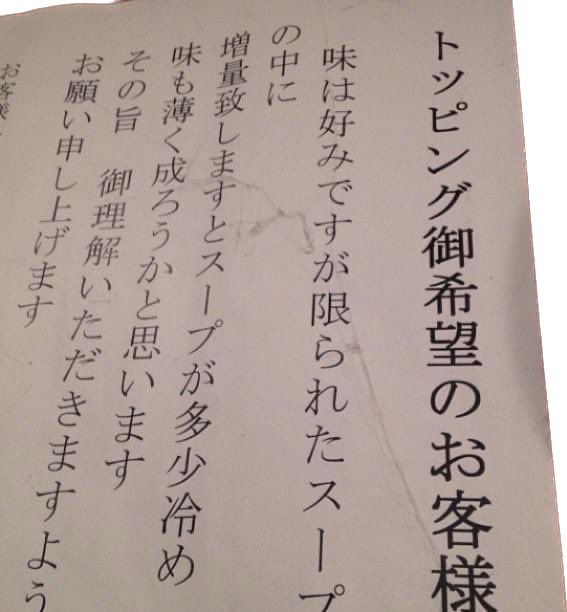 トッピング御希望のお客様
味は好みですが限られたスープ
の中に
増量致しますとスープが多少冷め
味も薄く成ろうかと思います
その旨　御理解いただきますよう
お願い申し上げます
お客様